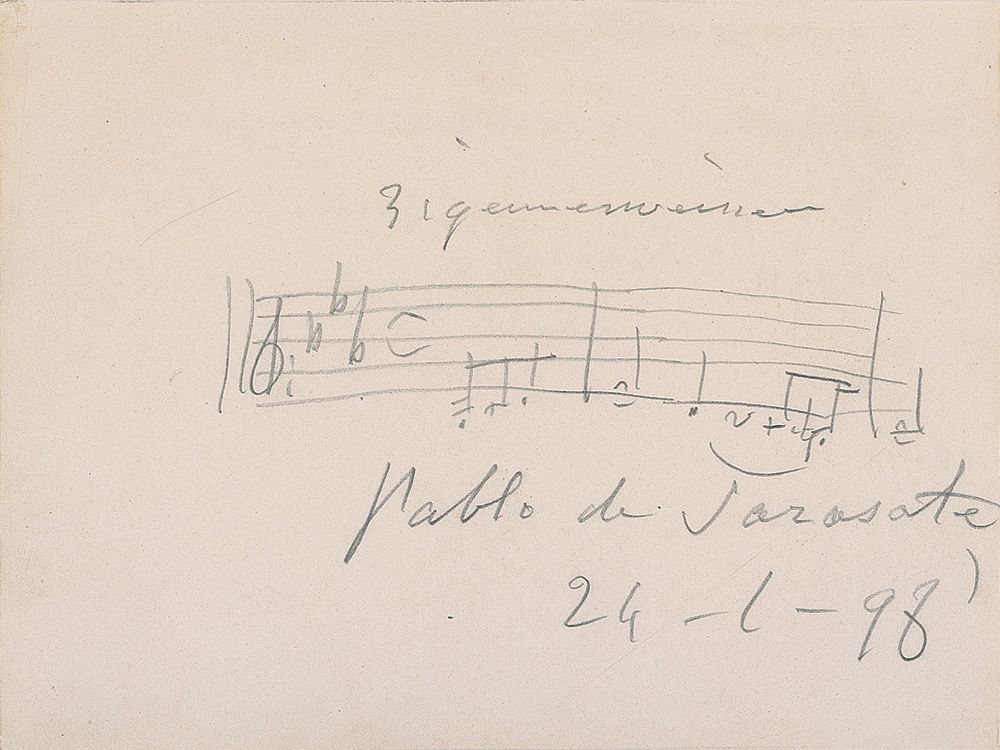 Zigeunerweisen
Pablo de Sarasate
24-1-98